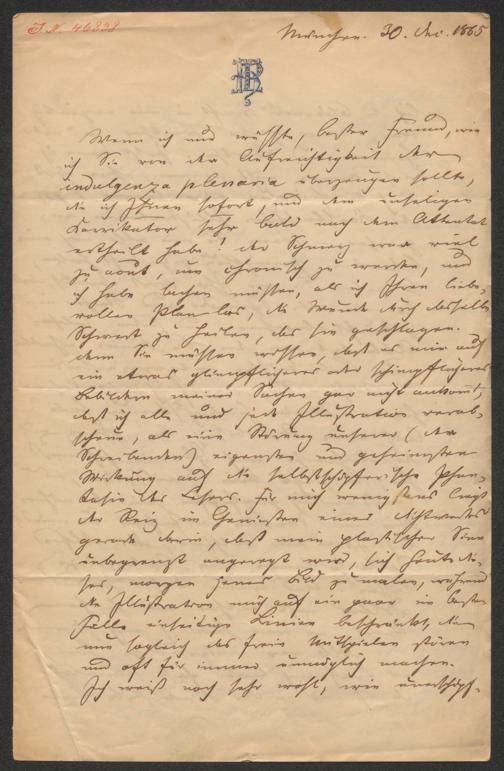 I.N. 46838
München. 30. Dec. 1865
Wenn ich nur wüßte, bester Freund, wie
ich Sie von der Aufrichtigkeit der
indulgenza plenaria überzeugen sollte,
die ich Ihnen sofort, und dem unseligen
Karrikator sehr bald nach dem Attentat
ertheilt habe! Der Schmerz war viel
zu acut, um chronisch zu werden, und
ich habe lachen müssen, als ich Ihren liebe-
vollen Plan las, die Wunde durch dasselbe
Schwert zu heilen, das sie geschlagen.
Denn Sie müssen wissen, daß es mir auf
ein etwas glimpflicheres oder schimpflicheres
Bebildern meiner Sachen gar nicht ankommt,
daß ich alle und jede Illustration verab-
scheue, als eine Störung unserer (der
Schreibenden) eigensten und geheimsten
Wirkung auf die selbstschöpferische Phan-
tasie des Lesers. Für mich wenigstens liegt
der Reiz im Genießen eines Dichtwerkes
gerade darin, daß mein plastischer Sinn
unbegrenzt angeregt wird, sich heute die-
ses, morgen jenes Bild zu malen, während
die Illustration mich auf ein paar im besten
Falle einseitige Linien beschränkt, die
nun sogleich das freie Mitspielen stören
und oft für immer unmöglich machen.
Ich weiß noch sehr wohl, wie unerschöpf-